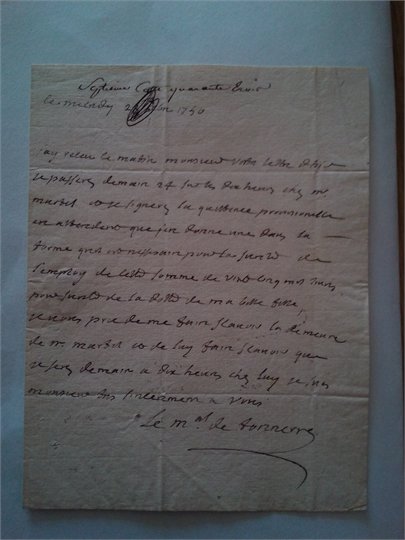 Septieme Cotte quarante trois
ce mercredy 2 1750
jay receu ce matin monsieur votre lettre
je passeray demain 24 sur les dix heures chez mr
martel et je signeray la quittance provisionelle
en attendant que j'en donne une dans la
forme qui est necessaire pour la sureté de
l'employ de cette somme de vint cinq mil livres
pour sureté de la dotte de ma belle fille,
je vous prie de me faire sçavoir la demeure
de mr martel et de luy faire sçavoir que
je seray demain a dix heures chez luy je suis
monsieur tres sincerement a vous
Le mal de tonnerre